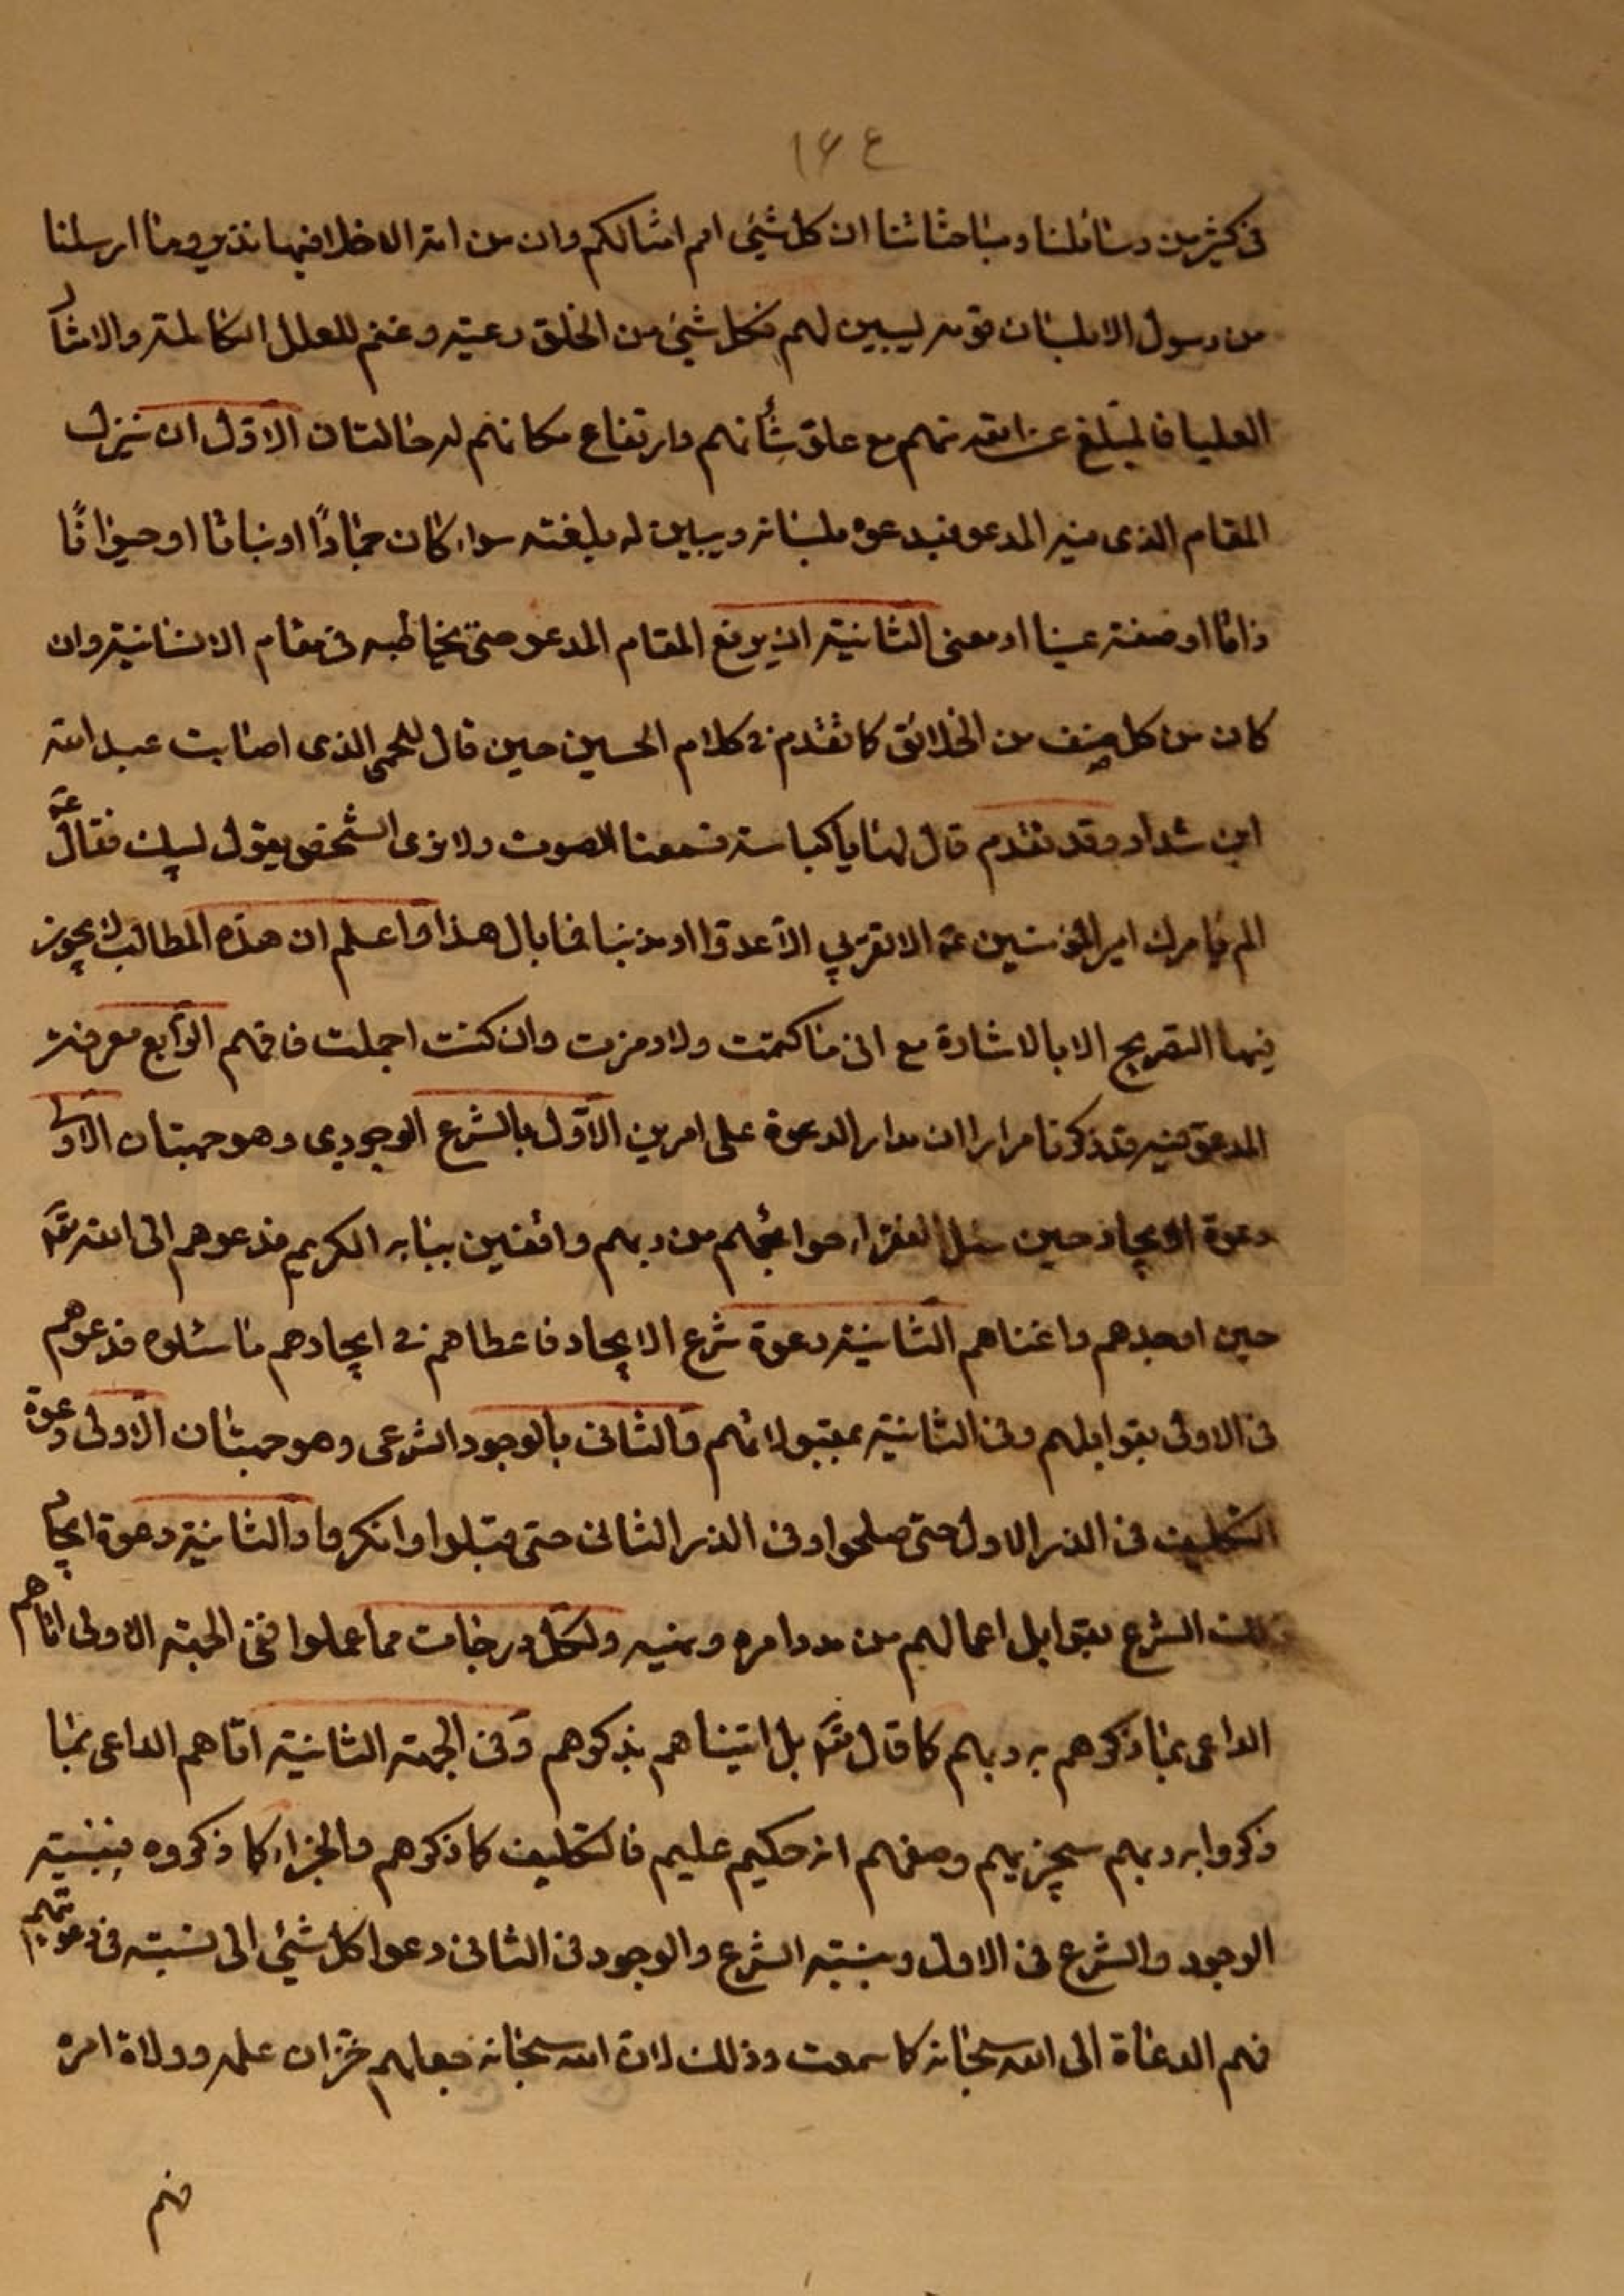 ١٦٤
في كثير من رسائلنا ومباحثاتنا ان كل شئ امم امثالكم وان من امة الا خلا فيها نذير وما ارسلنا
من رسول الا بلسان قومه ليبين لهم فكل شئ من الخلق رعيته وغنم للعلل الكاملة والامثال
العليا فالمبلغ عن الله منهم مع علو شأنهم وارتفاع مكانهم له حالتان الاول ان ينزل
المقام الذى فيه المدعو فيدعوه بلسانه ويبين له بلغته سواء كان جمادًا او نباتا او حيوانًا
ذاتا او صفة عينا او معنى الثانية ان يرفع المقام المدعو حتى يخاطبه في مقام الانسانية وان
كان من كل صنف من الخلائق كما تقدم في كلام الحسين حين قال للحمى الذى اصابت عبد الله
ابن شداد وقد تقدم قال لها يا كباسة فسمعنا الصوت ولا نرى الشخص يقول لبيك فقال عم
الم يامرك امير المؤمنين عم الا تقربي الا عدوا او مذنبا فما بال هذا واعلم ان هذه المطالب لا يجوز
فيها التصريح الا بالاشارة مع انى ما كتمت ولا رمزت وان كنت اجملت فافهم الرابع معرفة
المدعو فيه قد ذكرنا مرارا ان مدار الدعوة على امرين الاول بالشرع الوجودي وهو جهتان الاولى
دعوة الايجاد حين سئل الفقراء حوائجهم من ربهم واقفين ببابه الكريم فدعوهم الى الله تعا
حين اوجدهم واغناهم الثانية دعوة شرع الايجاد فاعطاهم في ايجادهم ما سئلوه فدعوهم
في الاولى بقوابلهم وفي الثانية بمقبولاتهم والثانى بالوجود الشرعى وهو جهتان الاولى دعوة
التكليف في الذر الاول حتى صلحوا وفي الذر الثانى حتى قبلوا وانكروا والثانية دعوة ايجاد
ذلك الشرع بقوابل اعمالهم من مدد امره ونهيه ولكل درجات مما عملوا ففى الجهة الاولى اتاهم
الداعى بما ذكرهم به ربهم كما قال تعا بل اتيناهم بذكرهم وفى الجهة الثانية اتاهم الداعى بما
ذكروا به ربهم سيجزيهم وصفهم انه حكيم عليم فالتكليف كما ذكرهم والجزاء كما ذكروه بنسبة
الوجود والشرع في الاول وبنسبة الشرع والوجود فى الثانى دعوا كل شئ الى نسبته فى دعوتهم
فهم الدعاة الى الله سبحانه كما سمعت وذلك لان الله سبحانه جعلهم خزان علمه وولاة امره
فهم